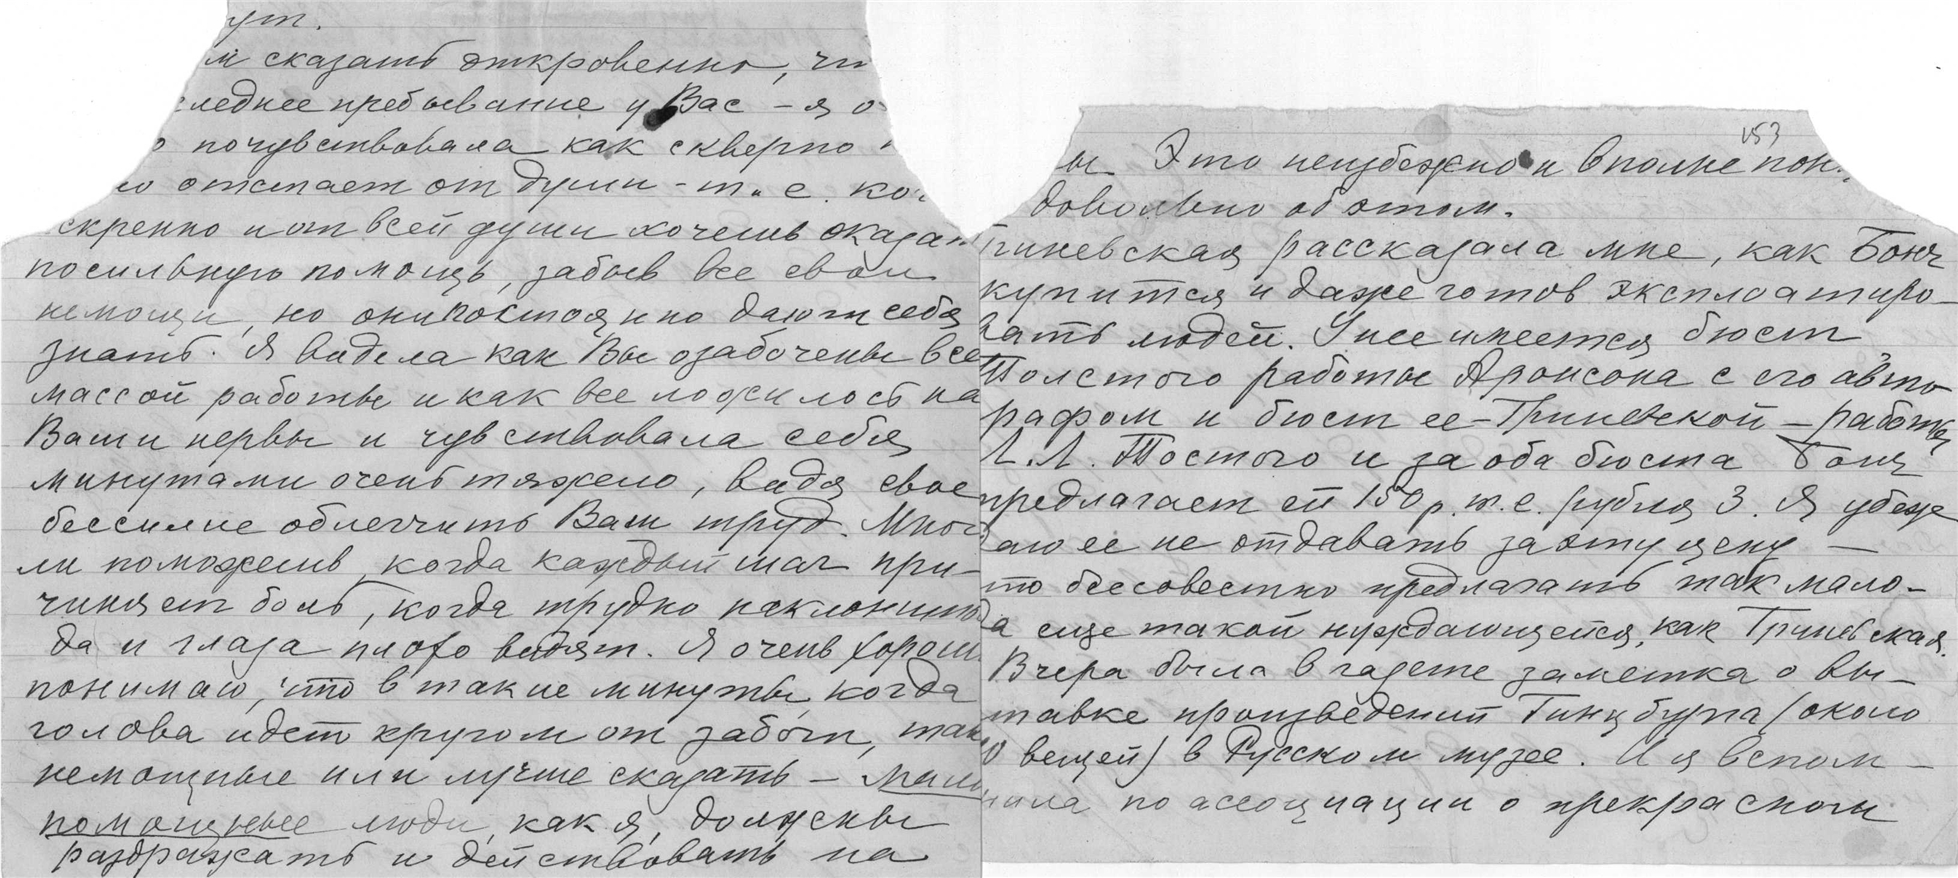 ут.
м сказать откровенно, чт
следнее пребывание у Вас – я о
о почувствовала как скверно
ло отстает от души – т. е. ког
скренно и от всей души хочешь оказат
посильную помощь, забыв все свои
немощи, но они постоянно дают себя
знать. Я видела как Вы озабочены все
массой работы и как все ложилось на
Ваши нервы и чувствовала себя
минутами очень тяжело, видя свое
бессилие облегчить Ваш труд. Мног
ли поможешь, когда каждый шаг при-
чиняет боль, когда трудно наклонить
да и глаза плохо видят. Я очень хорош
понимаю, что в такие минуты, когда
голова идет кругом от забот, так
немощные или лучше сказать – мало
помощные люди, как я, должны
раздражать и действовать на
153
ы. Это неизбежно и вполне пон.
довольно об этом.
Гриневская рассказала мне, как Бонч
купится и даже готов эксплоатиро-
вать людей. У нее имеется бюст
Толстого работы Аронсона с его авто
рафом и бюст ее – Гриневской – работы
Л. Л. Тостого и за оба бюста Бонч
предлагает ей 150 р. т. е. рубля 3. Я убеж
даю ее не отдавать за эту цену –
то бессовестно предлагать так мало –
да еще такой нуждающейся, как Гриневская.
Вчера была в газете заметка о вы-
тавке произведений Гинцбурга (около
0 вещей) в Русском музее. И я вспом-
нила по ассоциации о прекрасном